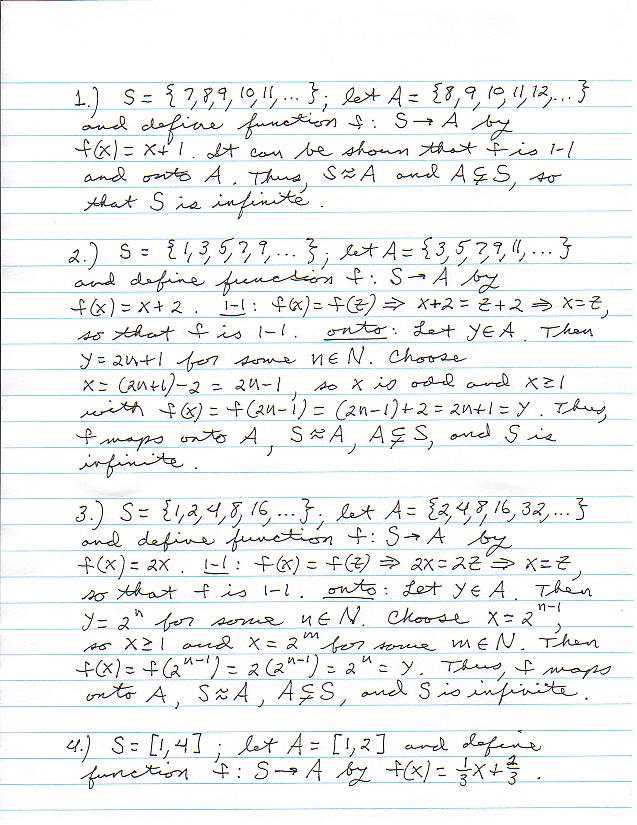 1.) S = {7,8,9,10,11,... }; let A = {8,9,10,11,12,...}
and define function f: S→A by
f(x) = x+1. It can be shown that f is 1-1
and onto A. Thus, S≈A and A⊊S, so
that S is infinite.
2.) S = {1,3,5,7,9,... }; let A = {3,5,7,9,11,...}
and define function f: S→A by
f(x) = x+2. 1-1: f(x) = f(z) ⇒ x+2 = z+2 ⇒ x=z,
so that f is 1-1. onto: Let y∈A. Then
y = 2n+1 for some n∈N. Choose
x = (2n+1)-2 = 2n-1, so x is odd and x≥1
with f(x) = f(2n-1) = (2n-1)+2 = 2n+1 = y. Thus,
f maps onto A, S≈A, A⊊S, and S is
infinite.
3.) S = {1,2,4,8,16,...}; let A = {2,4,8,16,32,...}
and define function f: S→A by
f(x) = 2x. 1-1: f(x) = f(z) ⇒ 2x = 2z ⇒ x=z,
so that f is 1-1. onto: Let y∈A. Then
y = 2ⁿ for some n∈N. Choose x = 2ⁿ⁻¹,
so x≥1 and x = 2ᵐ for some m∈N. Then
f(x) = f(2ⁿ⁻¹) = 2(2ⁿ⁻¹) = 2ⁿ = y. Thus, f maps
onto A, S≈A, A⊊S, and S is infinite.
4.) S = [1,4]; let A = [1,2] and define
function f: S→A by f(x) = 1/3x + 2/3.